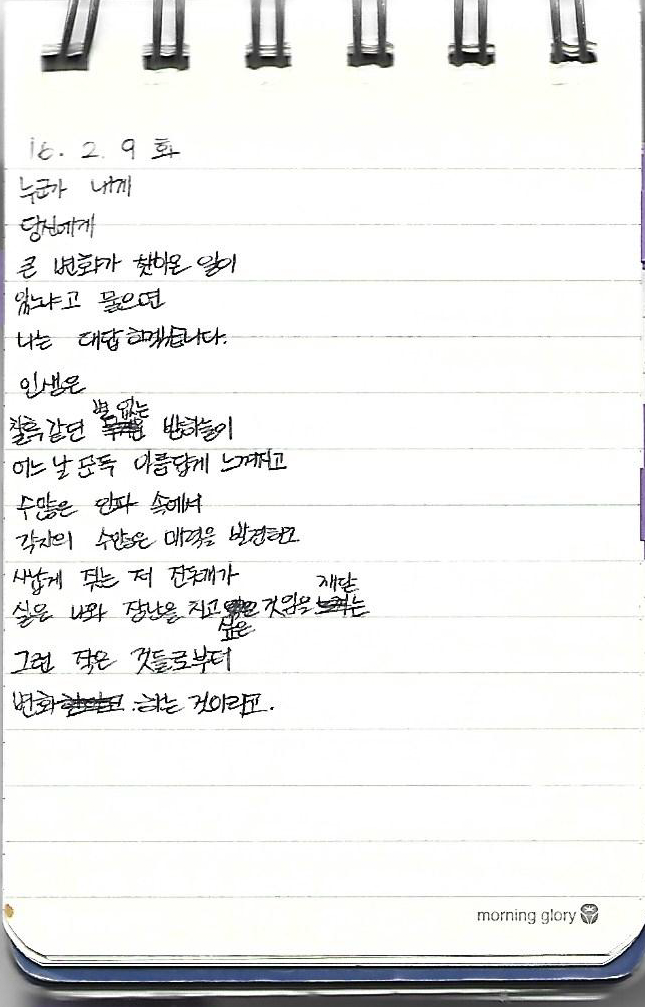 16. 2. 9 화
누군가 내게
당신에게
큰 변화가 찾아온 일이
있느냐고 물으면
나는 대답하겠습니다.
인생은
칠흑같던 별 없는 밤하늘이
어느날 문득 아름답게 느껴지고
수많은 인파 속에서
각자의 수많은 매력을 발견하고
사납게 짖는 저 진돗개가
실은 나와 장난을 치고 싶은 것임을 깨닫는
그런 작은 것들로부터
변화 하는 것이라고.
morning glory